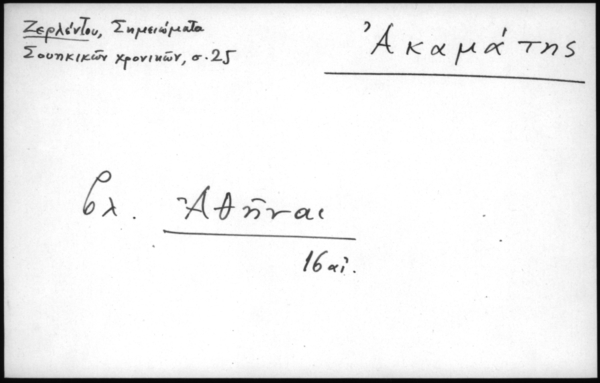 Ζερλέντου, Σημειώματα
Σουηκικῶν χρονικῶν, σ. 25
Ἀκαμάτης
βλ. Ἀθῆναι
16 αἰ.